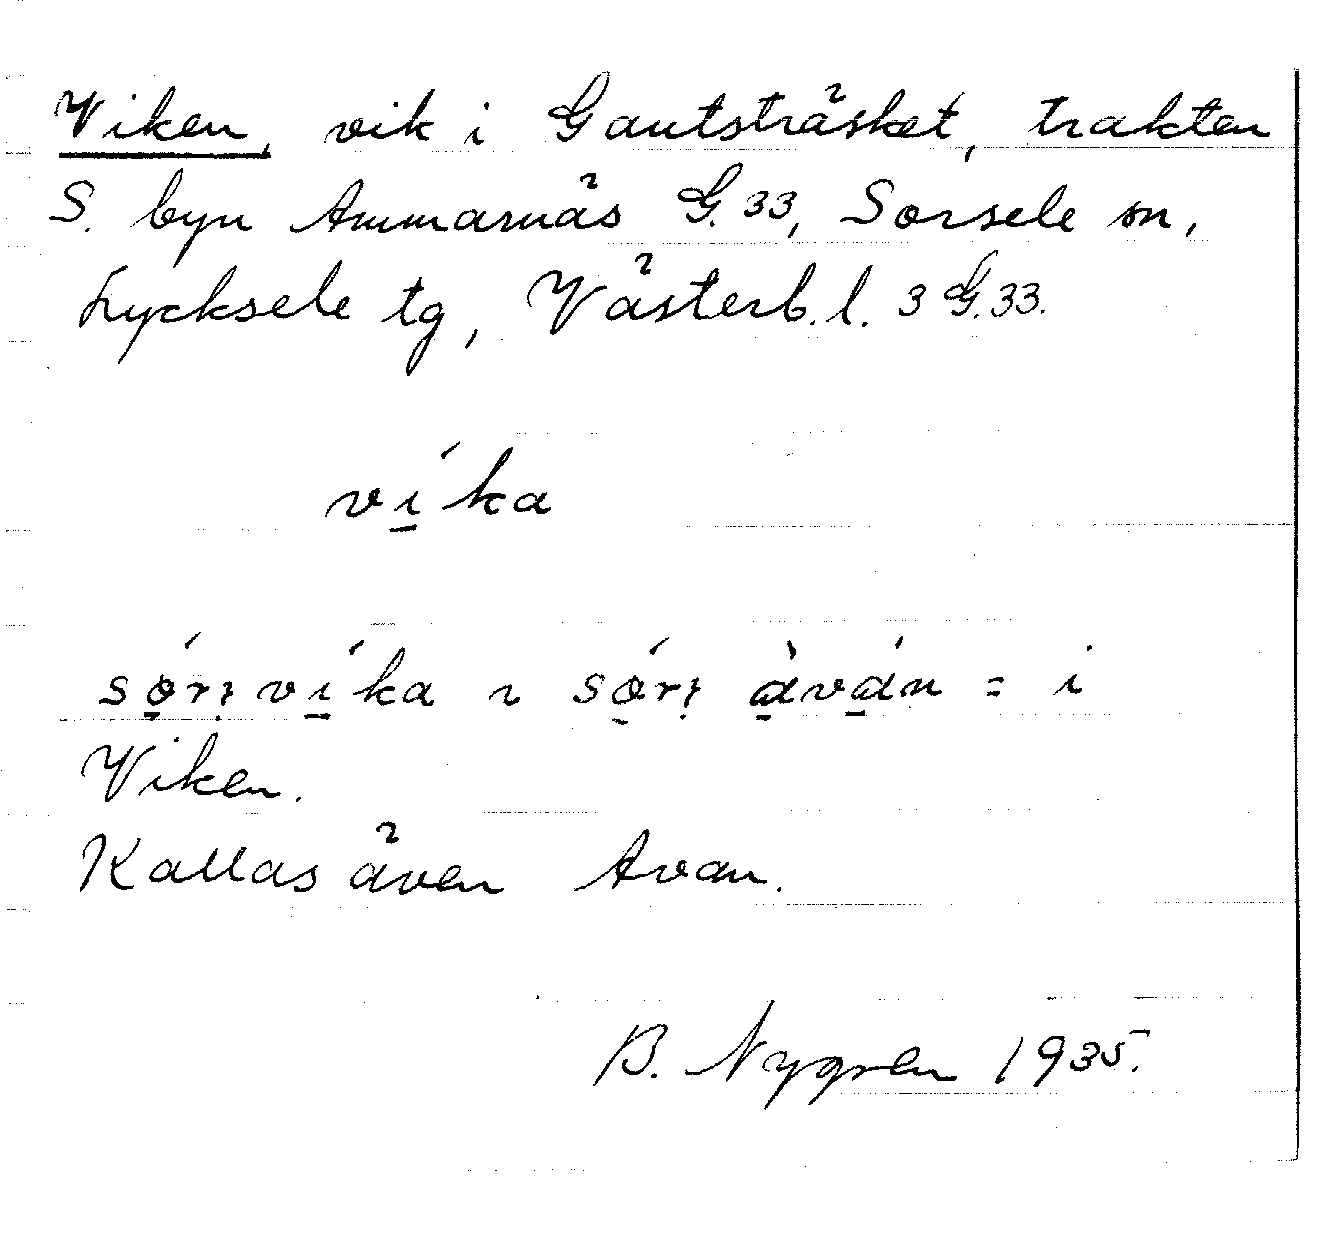 Viken, vik i Gautsträsket, trakten
S. byn Ammarnäs G. 33, Sorsele sn,
Lycksele tg, Västerb. l. 3 G. 33.
vi̱´ka
sø̱´rı̣ vi̱´ka ı sø̱´rı̣ a̱`va̱´n = i
Viken.
Kallas även Avan.
B. Nygren 1935.